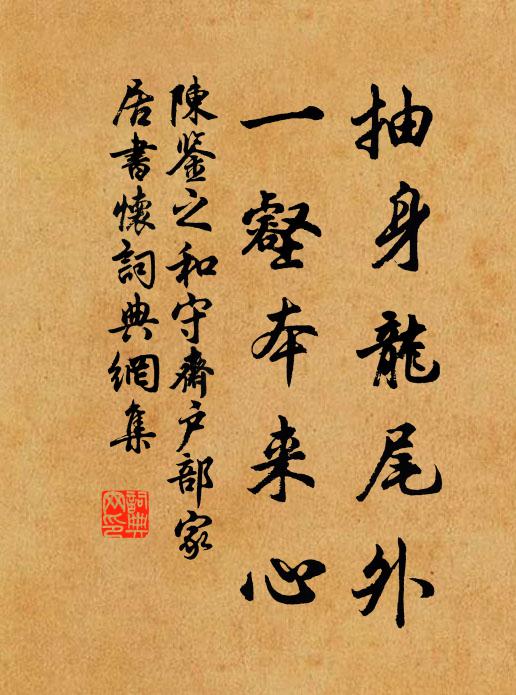 抽身龍尾外
一壑本来心
陳鉴之和守齋户部家
居書懷詞典網集
詞典
网印